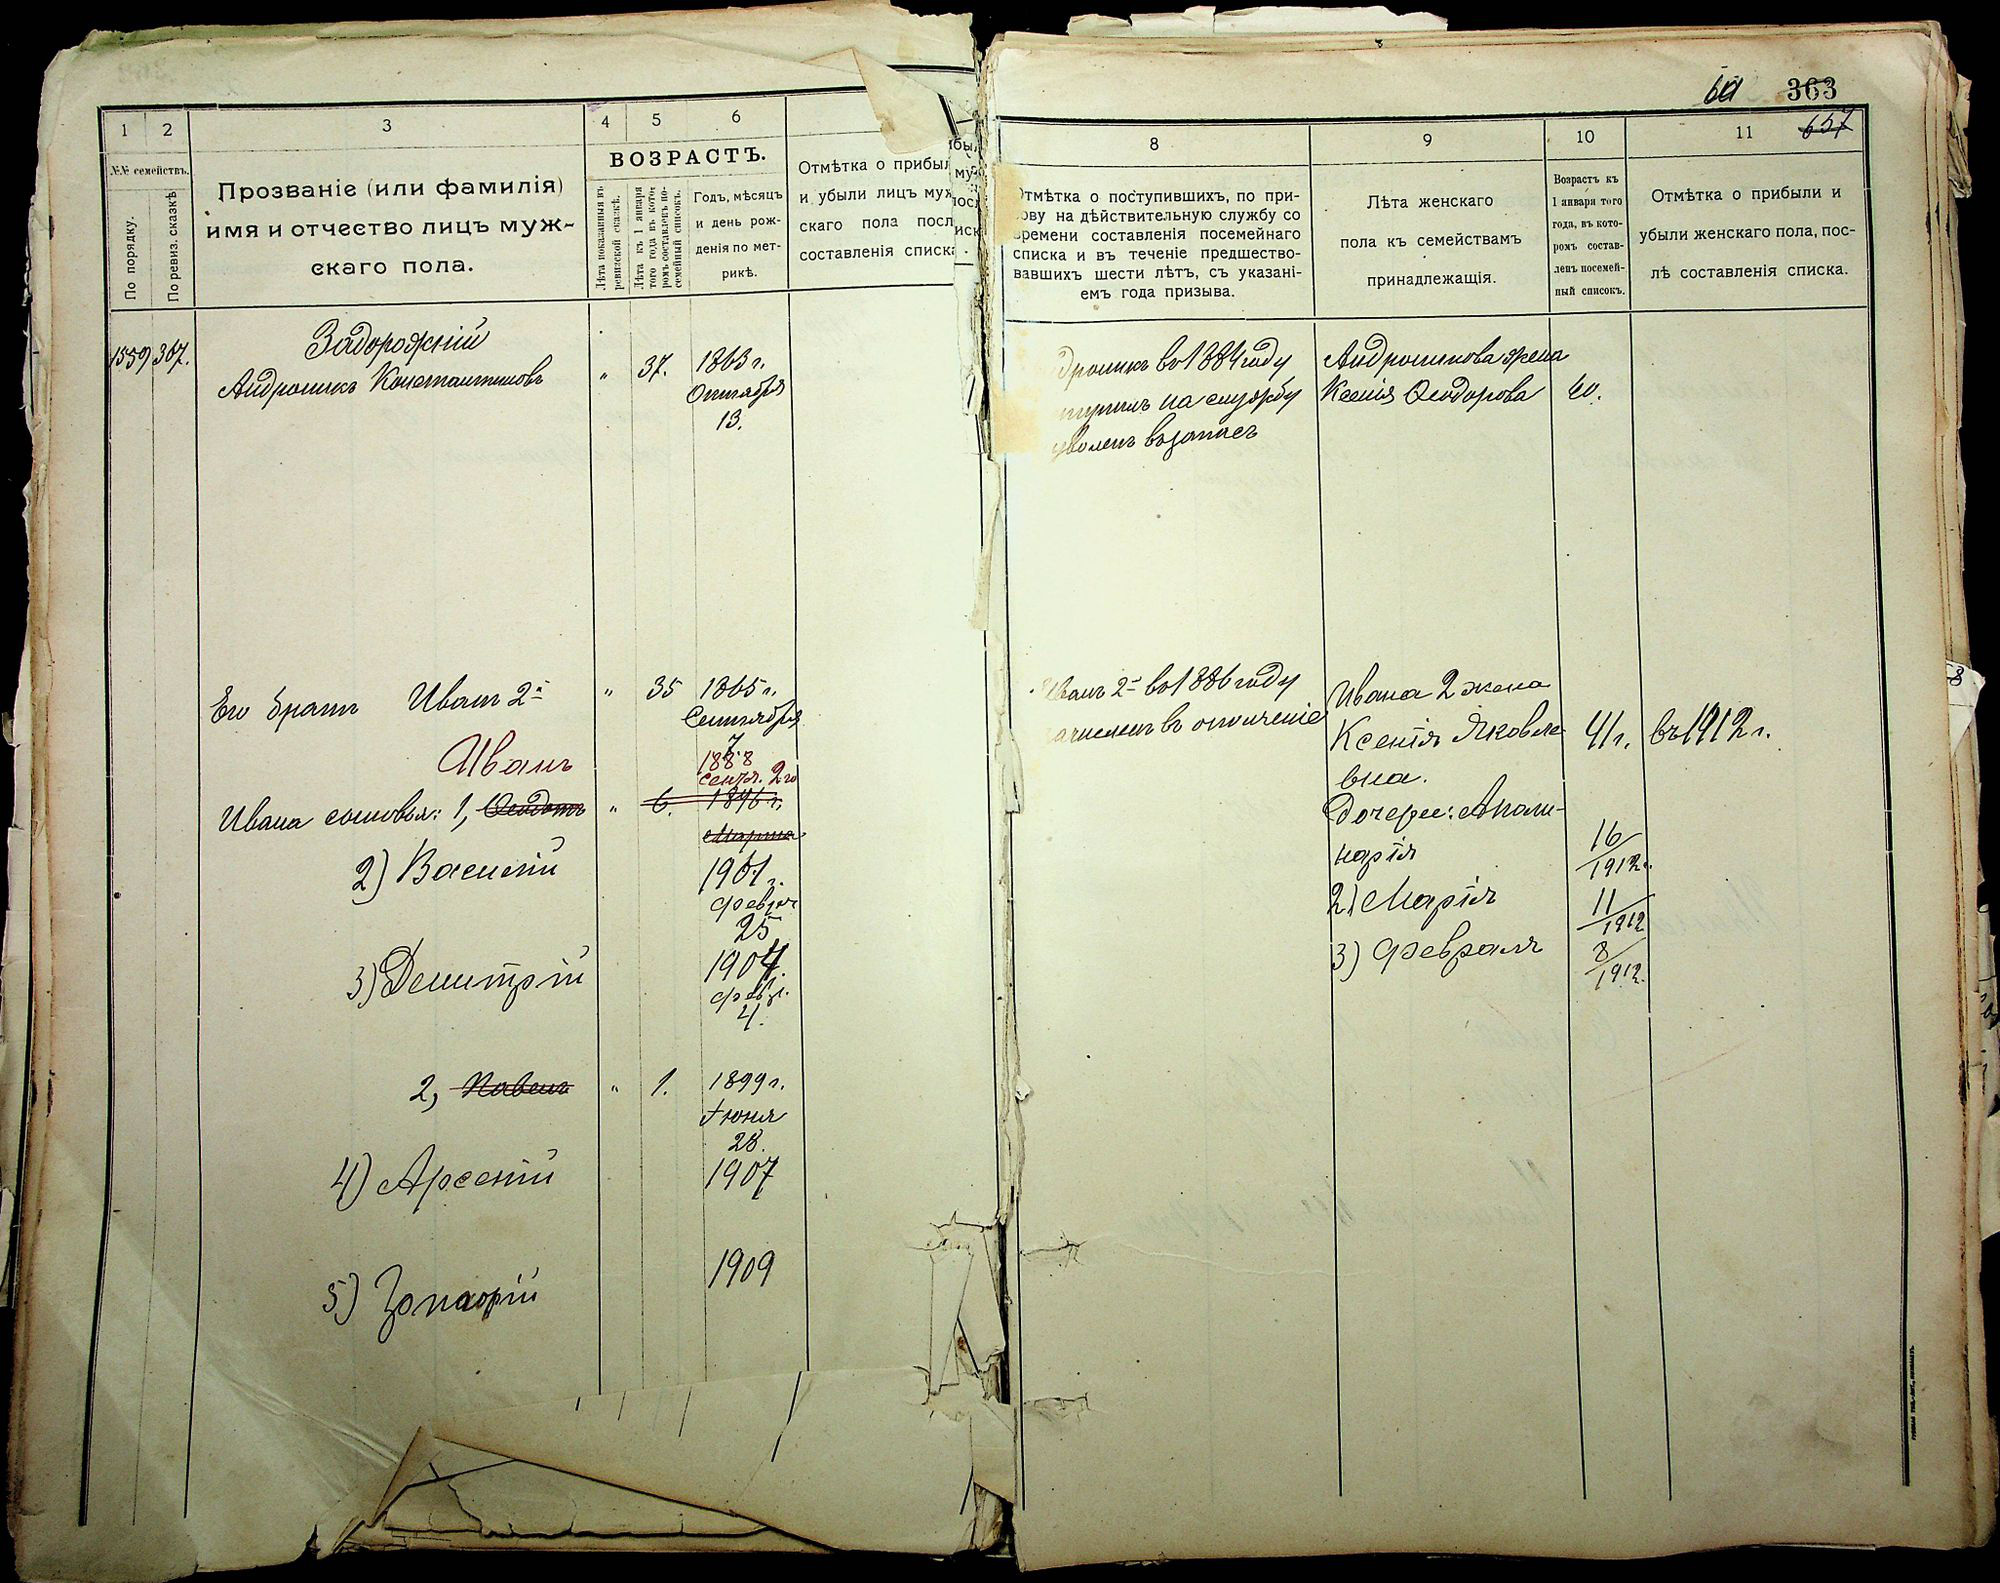 1
2
3
4
5
6
№№ семействъ.
По порядку.
По ревиз. сказкѣ
Прозваніе (или фамилія)
имя и отчество лицъ муж-
скаго пола.
ВОЗРАСТЪ.
Лѣта показанныя въ
ревизской сказкѣ.
Лѣта къ 1 января
того года въ кото-
ромъ составленъ по-
семейный списокъ.
Годъ, мѣсяцъ
и день рож-
денія по мет-
рикѣ.
Отмѣтка о прибыл
и убыли лицъ муж
скаго пола посл
составленія списка
1559 367.
Задорожній
Андроникъ Константиновъ
" 37. 1863 г.
Октября
13.
Его братъ Иванъ 2й
" 35 1865 г.
Сентября
7.
Иванъ
1888
сентя. 2го
Ивана сыновья: 1, Ѳеодотъ " 6. 1896 г.
Марта
2) Василій
1901 г.
февра
25
3) Димитрій
1904.
февр.
4.
2, Павелъ " 1. 1899 г.
Іюня
28.
4) Арсеній 1907
5) 1909
363
657
8
9
10
11
Отмѣтка о поступившихъ, по при-
зову на дѣйствительную службу со
времени составленія посемейнаго
списка и въ теченіе предшество-
вавшихъ шести лѣтъ, съ указані-
емъ года призыва.
Лѣта женскаго
пола къ семействамъ
принадлежащія.
Возрастъ къ
1 января того
года, въ кото-
ромъ состав-
ленъ посемей-
ный списокъ.
Отмѣтка о прибыли и
убыли женскаго пола, пос-
лѣ составленія списка.
дроникъ въ 1884 году
тупилъ на службу
уволенъ въ запасъ
Андроникова жена
Ксенія Ѳеодорова 40.
Иванъ 2й въ 1886 году
зачисленъ въ ополченіе
Ивана 2 жена
Ксенія Яковле-
вна.
41 г. въ 1912 г.
Дочери: Аполи-
нарія
16
1912 г.
2) Марія
11
1912
3) Февралъ
8
1912.